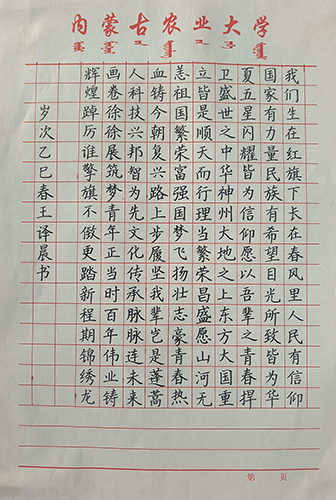 内蒙古农业大学
我们生在红旗下长在春风里人民有信仰
国家有力量民族有希望目光所致皆为华
夏五星闪耀皆为信仰愿以吾辈之青春捍
卫盛世之中华神州大地之上东方大国重
立皆是顺天而行理当繁荣昌盛愿山河无
恙祖国繁荣富强国梦飞扬壮志豪青春热
血铸今朝复兴路上步履坚我辈岂是蓬蒿
人科技兴邦智为先文化传承脉脉连未来
画卷徐徐展筑梦青年正当时百年伟业铸
辉煌踔厉谁擎旗不做更踏新程期锦绣龙
岁次乙巳春王译晨书
第 页